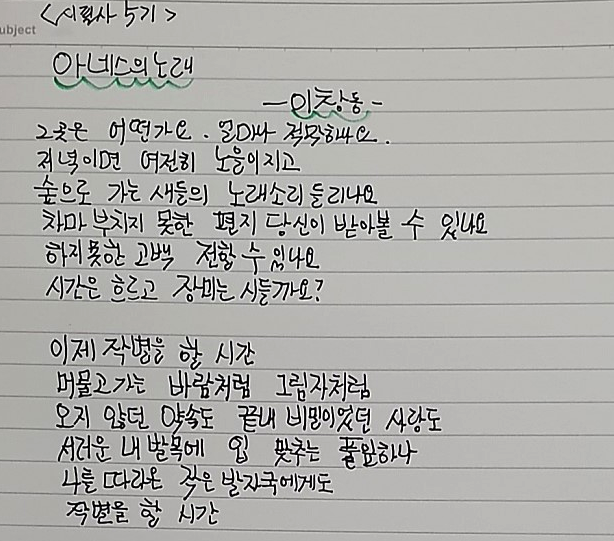 <시필사 5기>
ubject
아네스의 노래
- 이창동 -
그곳은 어떤가요. 얼마나 적막하나요.
저녁이면 여전히 노을이 지고
숲으로 가는 새들의 노래소리 들리나요
차마 부치지 못한 편지 당신이 받아볼 수 있나요
하지 못한 고백 전할 수 있나요
시간은 흐르고 장미는 시들까요?
이제 작별을 할 시간
머물고 가는 바람처럼 그림자처럼
오지 않던 약속도 끝내 비밀이었던 사랑도
서러운 내 발목에 입 맞추는 풀잎하나
나를 따라온 작은 발자국에게도
작별을 할 시간